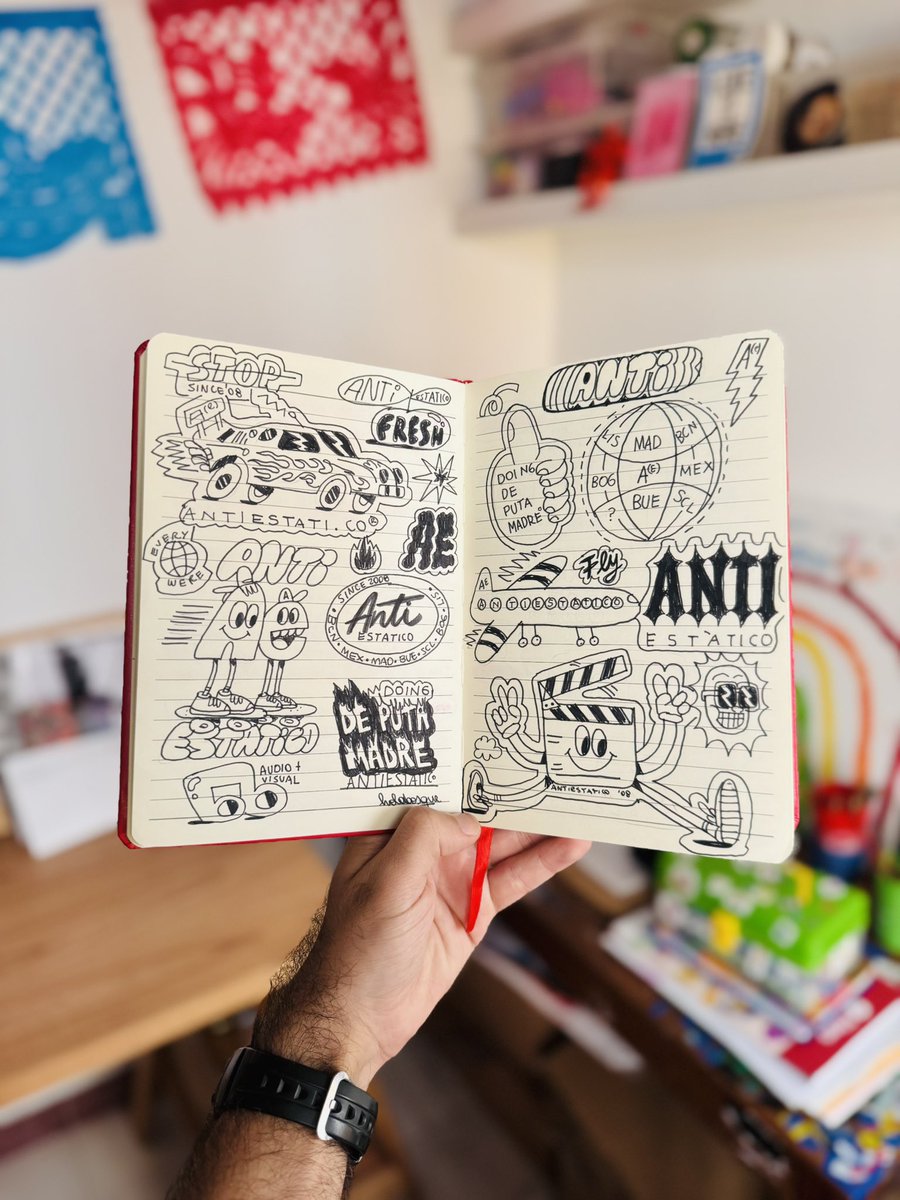 STOP
SINCE '08
A(E)
ANTIESTATI.CO®
EVERY
WERE
ANTI
ESTATIC!
AUDIO +
VISUAL
ANTi ESTATICO
FRESH
AE
SINCE 2008
Anti
ESTATICO
BCN • MEX • MAD • BUE • SCL • BOG • SCL
DOING
DE PUTA
MADRE
ANTIESTATICO
holabosque
ANTi
A(E)
DOING
DE
PUTA
MADRE
LIS MAD BCN
BOG A(E) MEX
? BUE SCL
AE
Fly
ANTIESTATICO
ANTI
ESTÀTICO
ANTIESTATICO '08